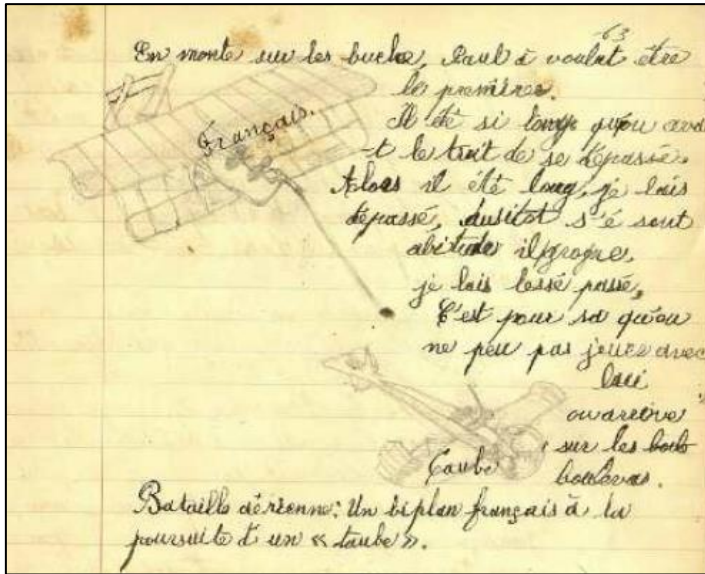 63
En monte sur les buche, Paul à voulut être
le premírer.
Français.
Il été si long qu'ou avai
-t le troit de se dépassé.
Alors il été long, je lais
dépassé, ausitot s'é sont
abitude il grogne,
je lais lessé passé,
C'est pour sa qu'ou
ne peu pas jouez avec
lui
ou arrive
sur les boub
boulevas.
Taube
Bataille aérienne: Un biplan français à la
poursuite d'un « taube ».